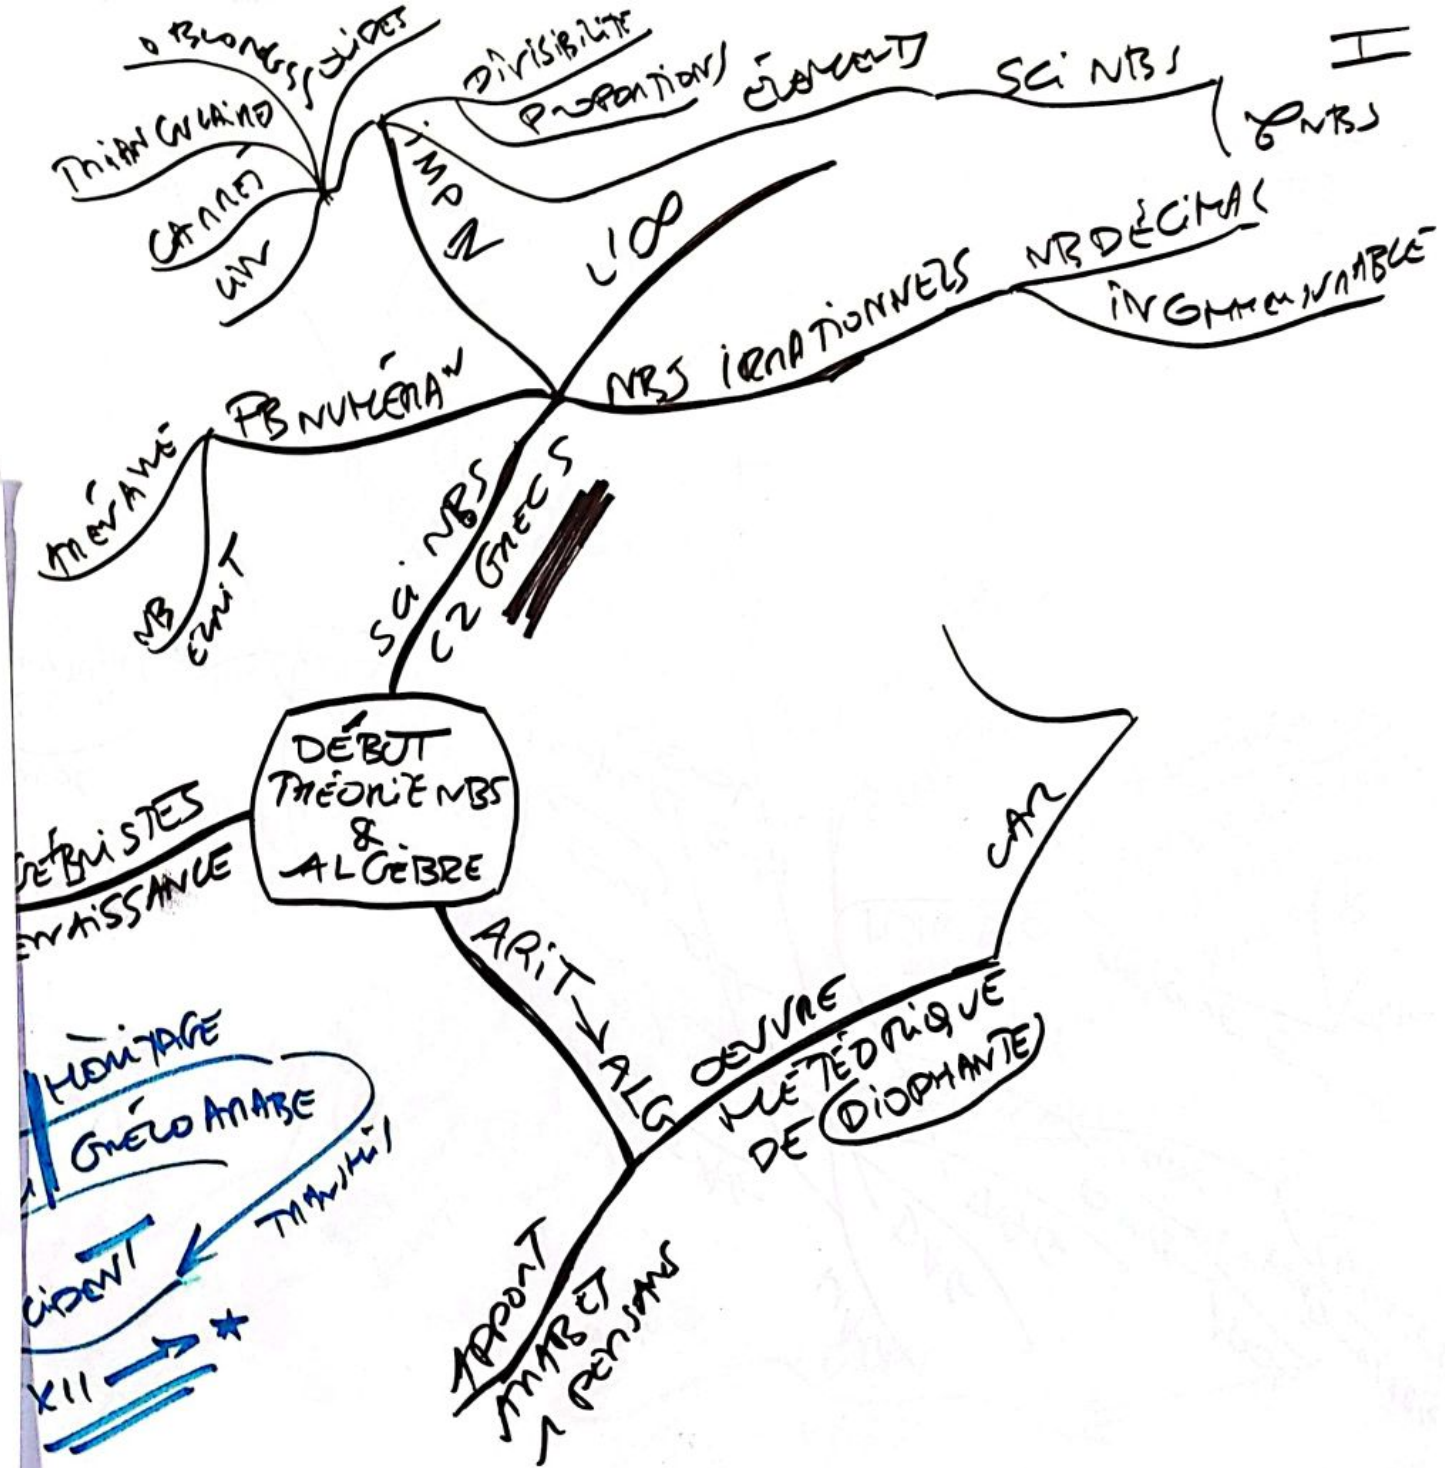 OBLONGS
SOLIDES
TRIANGULAIRE
CARRÉ
LIN
DIVISIBILITÉ
PROPORTIONS
ÉLÉMENTS
SCI NBS
I
NBS
IMP
N
L'∞
NBS IRRATIONNELS
NB DÉCIMAL
INCOMMENSURABLE
PB NUMÉRA°N
NB
ÉCRIT
SCI NBS
CZ GRECS
DÉBUT
THÉORIE NBS
&
ALGÈBRE
GÉBRISTES
ENAISSANCE
ARIT → ALG
OEUVRE
MÉTÉORIQUE
DE DIOPHANTE
CAR
APPORT
ARABE ET
PERSANS
HÉRITAGE
GRÉCO ARABE
TRANSMIS
CIDENT
XII → ★